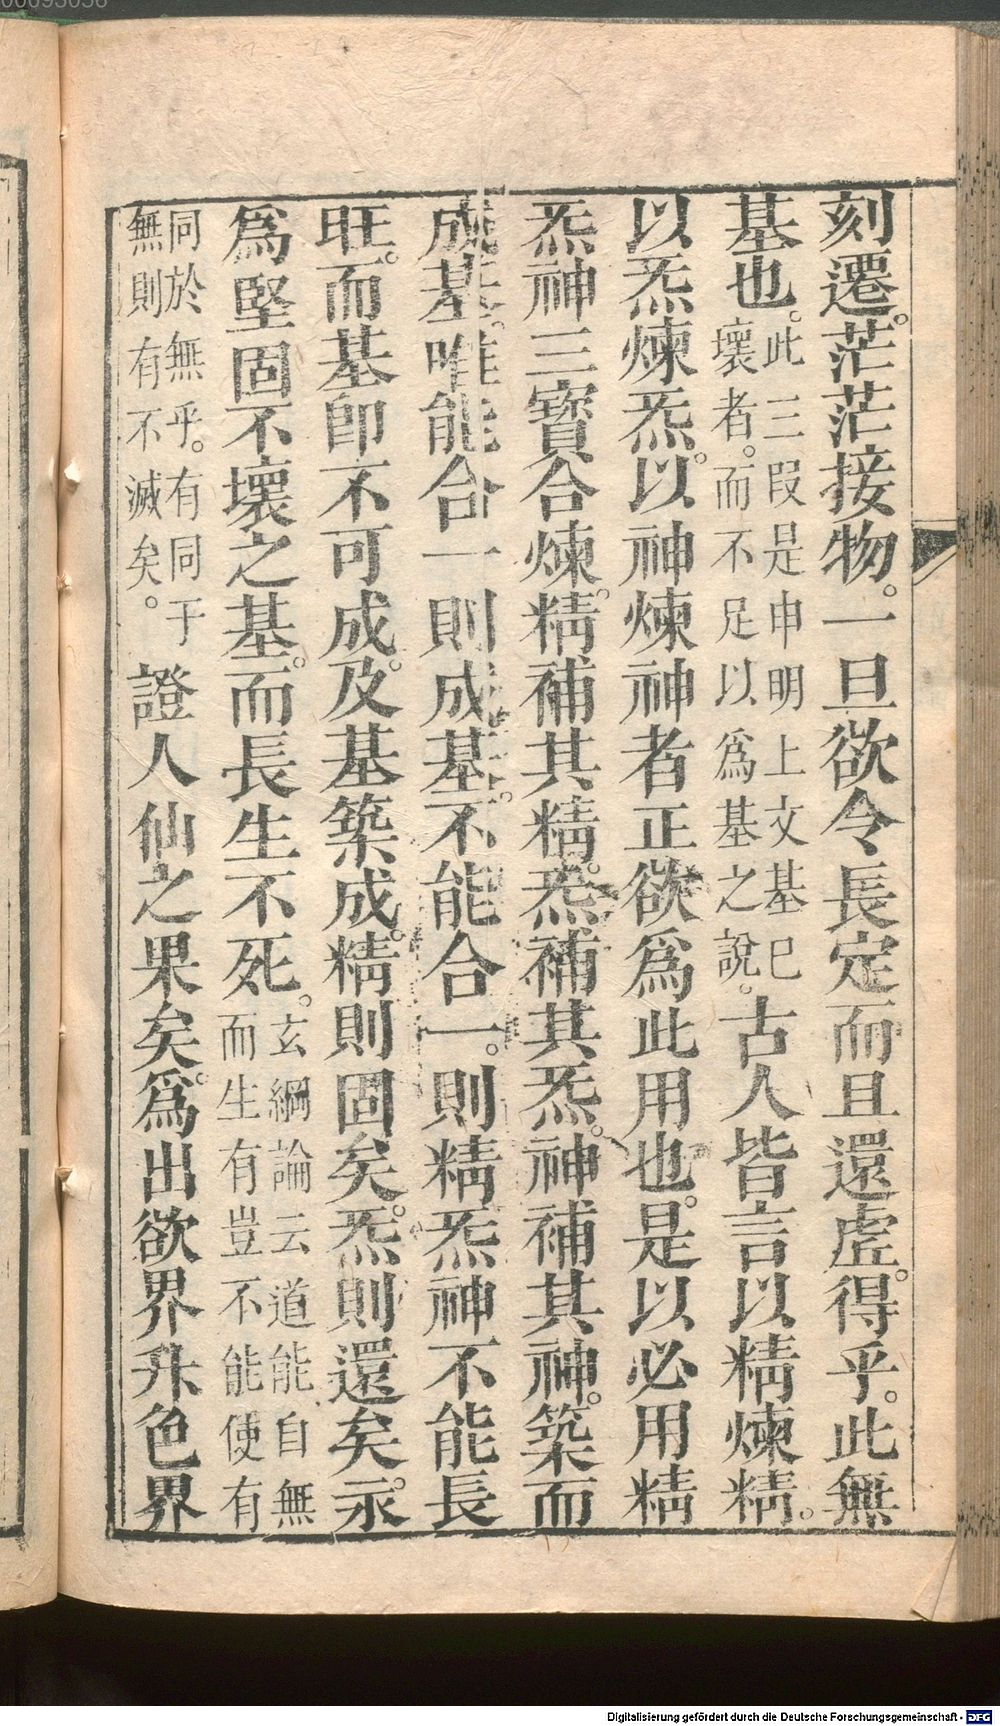 00093036
刻遷。茫茫接物。一旦欲令長定而且還虗。得乎。此無
基也。此三叚是申明上文基已壞者。而不足以爲基之說。古人皆言以精煉精。
以炁煉炁。以神煉神者正欲爲此用也。是以必用精
炁神三寳合煉。精補其精。炁補其炁。神補其神。築而
成基。唯能合一則成基。不能合一。則精炁神不能長
旺。而基卽不可成。及基築成。精則固矣。炁則還矣。永
爲堅固不壞之基。而長生不死。玄綱論云道能自無而生有豈不能使有
同於無乎。有同于無則有不滅矣。證人仙之果矣。爲出欲界升色界
Digitalisierung gefördert durch die Deutsche Forschungsgemeinschaft - DFG